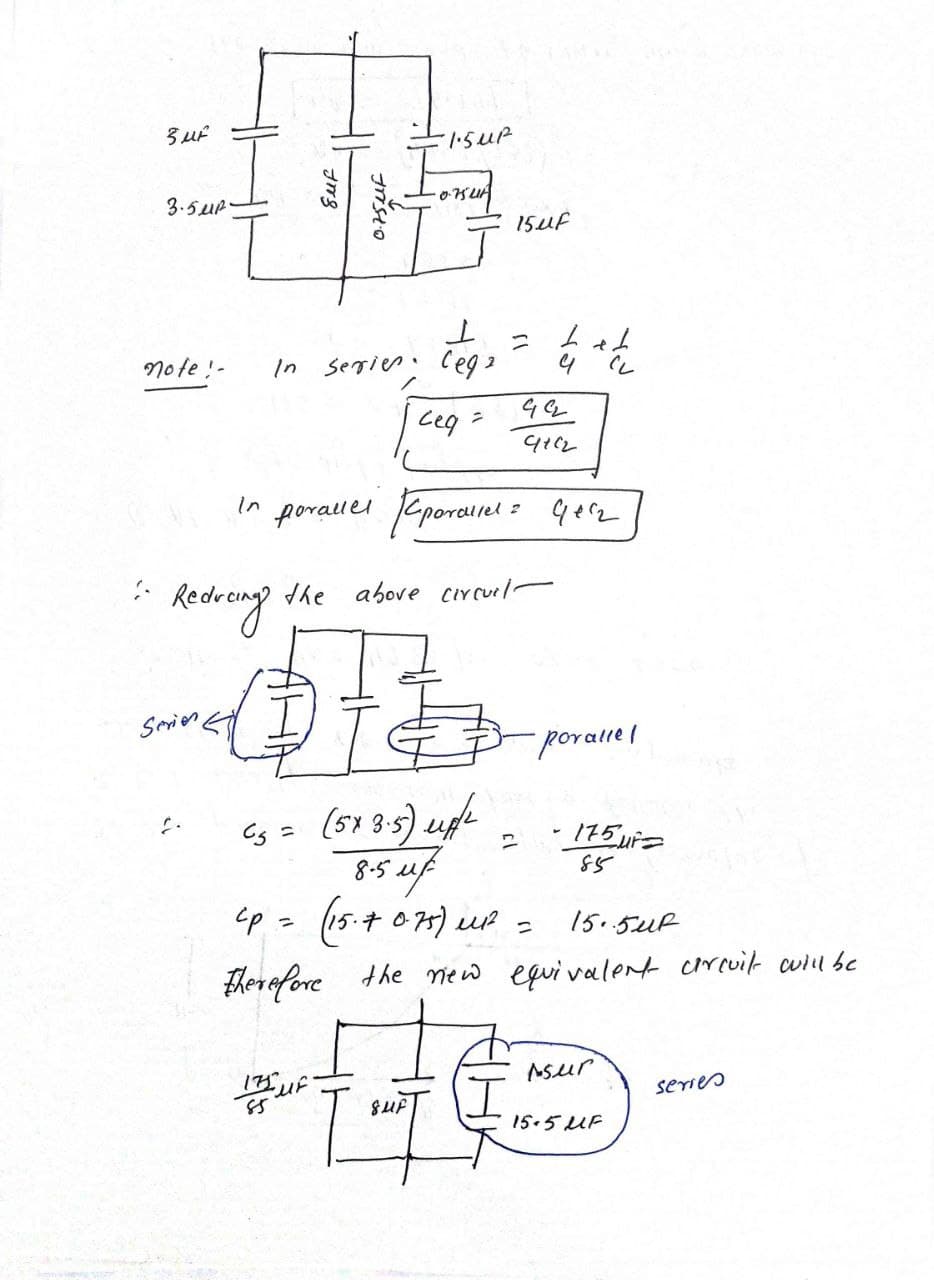 3 uF
1.5 uF
3.5 uF
8uF
0.75uF
0.75uF
15uF
Note:- In series. 1/Ceq = 1/C1 + 1/C2
Ceq = C1C2/C1+C2
In parallel Cparallel = C1+C2
∴ Reducing the above circuit
series
parallel
∴ Cs = (5x 3.5) uF² / 8.5 uF = 175/85 uF =
Cp = (15.+ 0.75) uF = 15.5uF
Therefore the new equivalent circuit will be
175/85 uF
8uF
1.5uF
series
15.5 uF